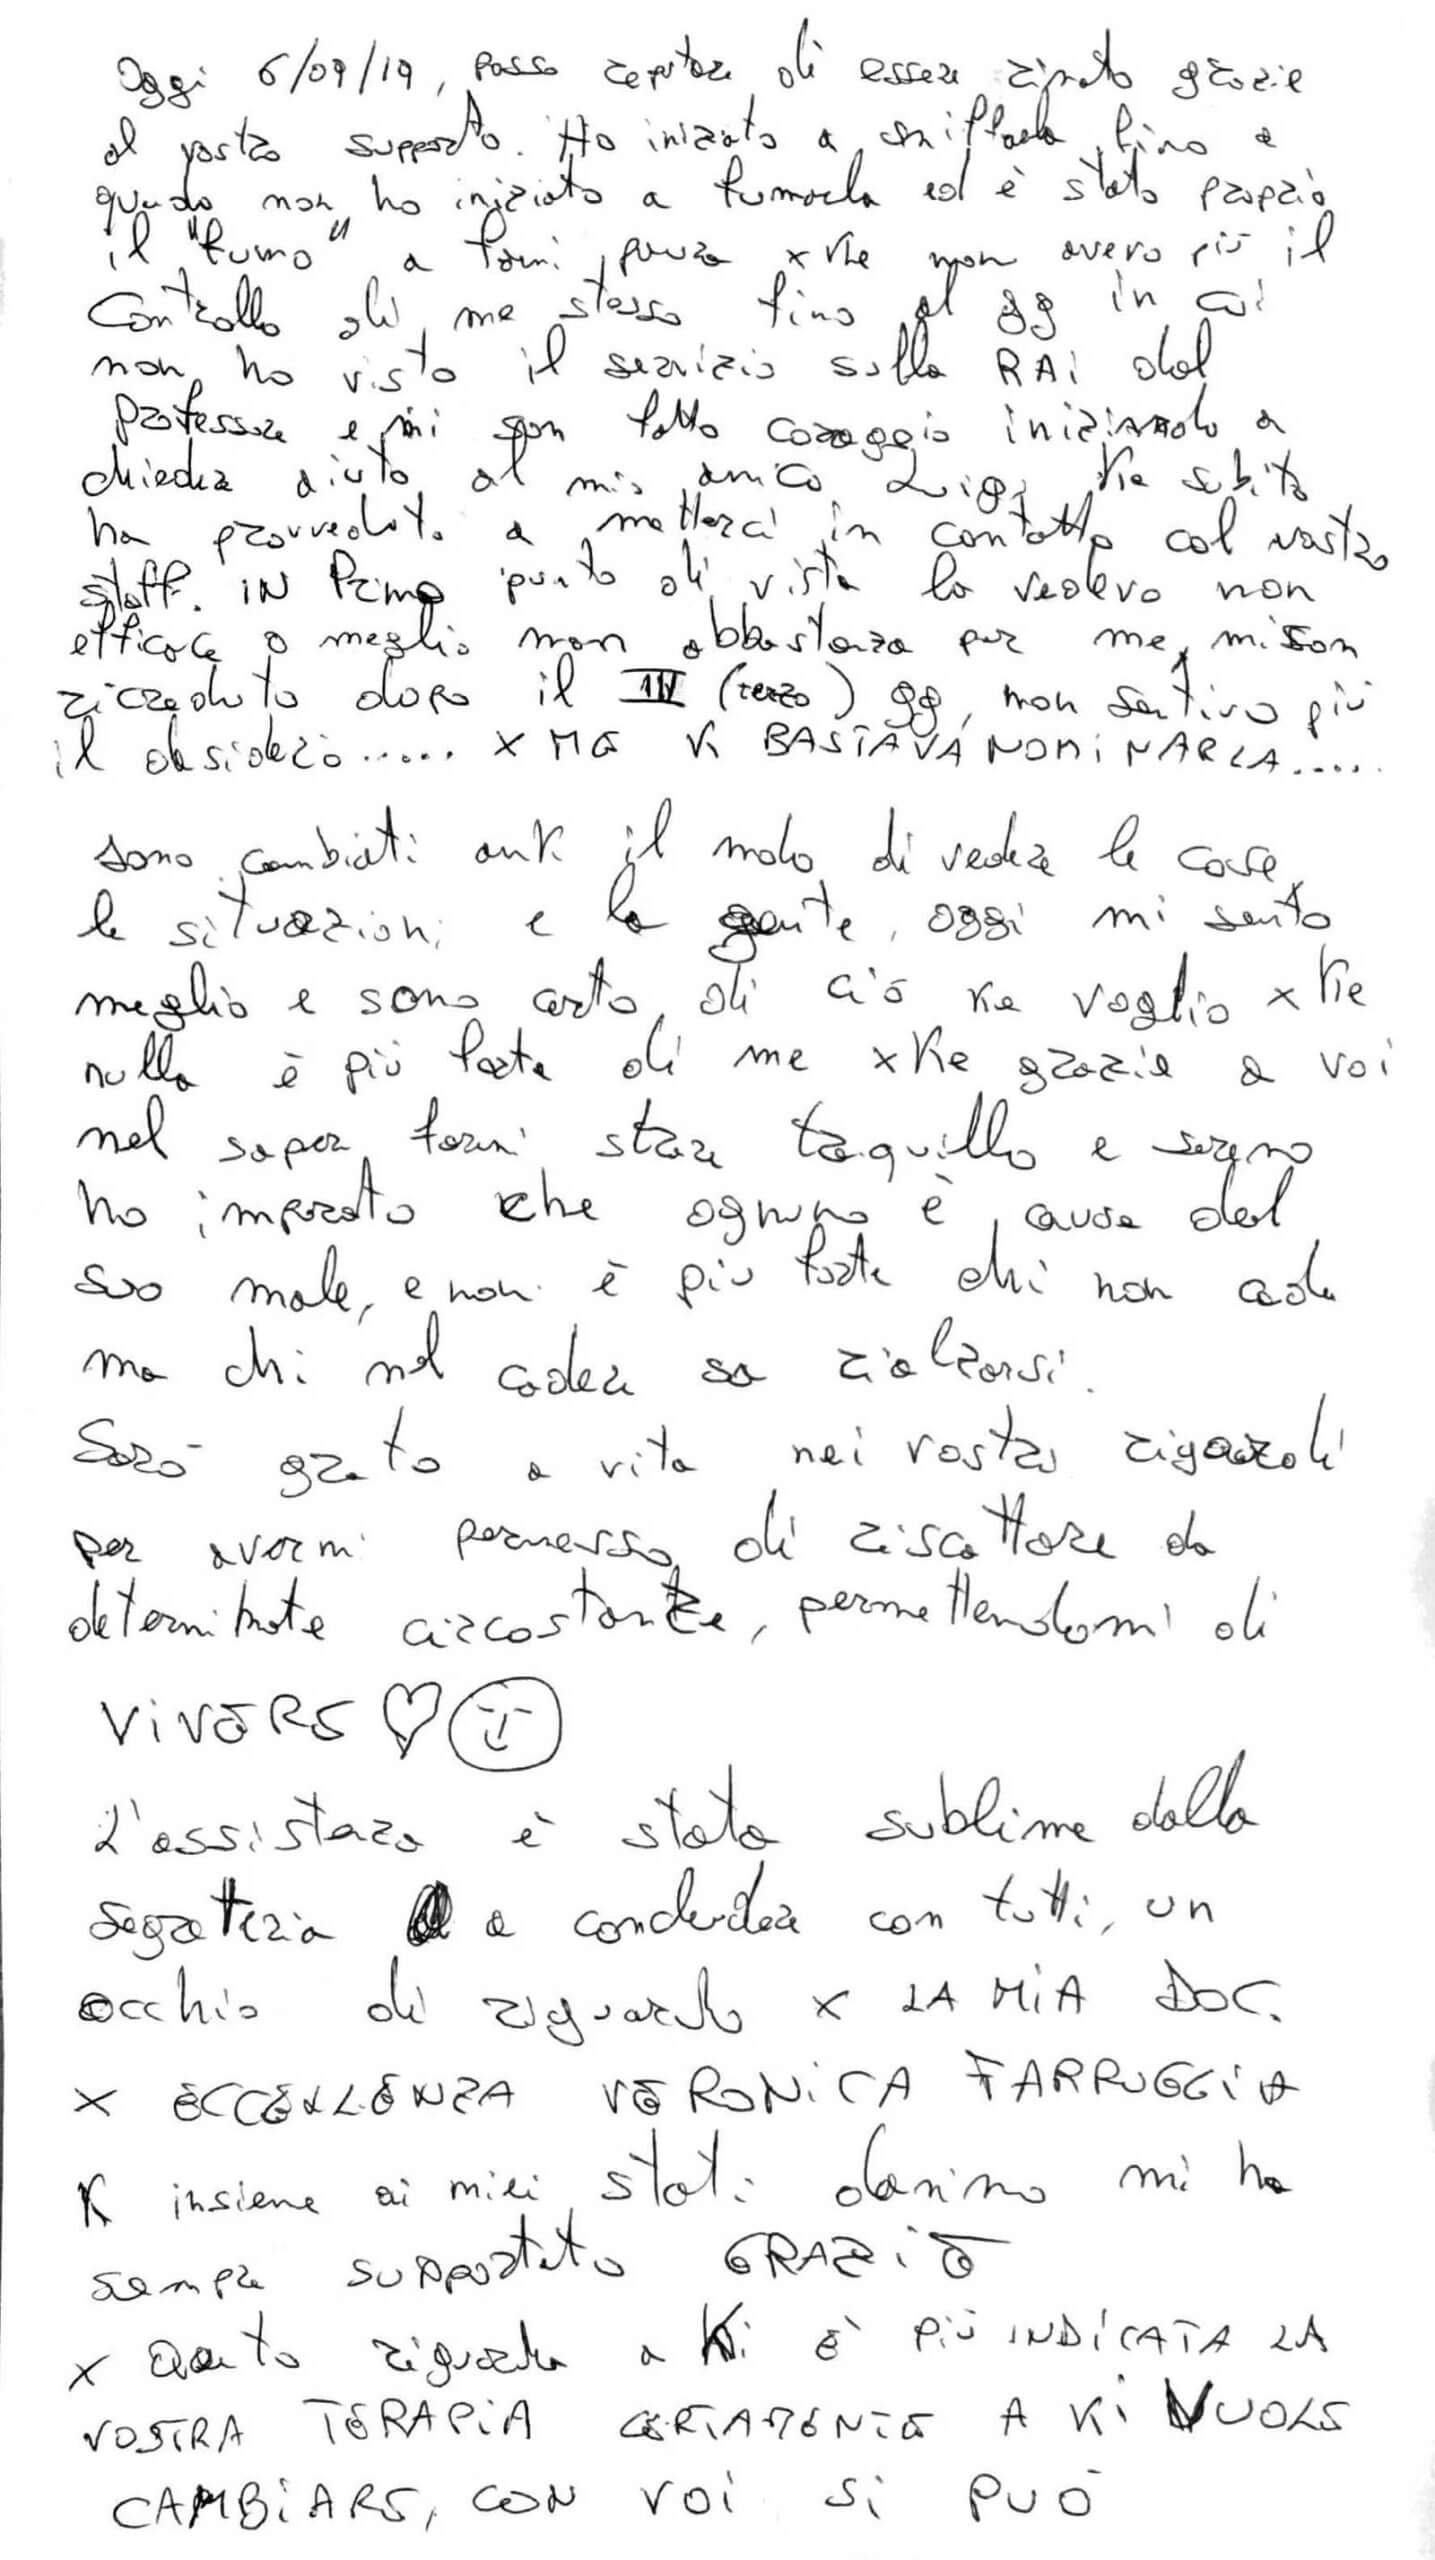 Oggi 6/09/19, posso reputare di essere rinato grazie
al vostro supporto. Ho iniziato a sniffarla fino a
quando non ho iniziato a fumarla ed è stato proprio
il "fumo" a farmi paura xche non avevo più il
Controllo di me stesso fino al gg in cui
non ho visto il servizio sulla RAI del
Professore e mi son fatto coraggio iniziando a
chiedere aiuto al mio amico Luigi Ke subito
ha provveduto a metterci in contatto col vostro
staff. IN Primo punto di vista lo vedevo non
efficace o meglio non abbastanza per me, mi son
ricreduto dopo il III (terzo) gg, non sentivo più
il desiderio..... X ME K BASTAVA NOMINARLA.....
sono cambiati anK il modo di vedere le cose,
le situazioni e la gente, oggi mi sento
meglio e sono certo di ciò Ke voglio xKe
nulla è più forte di me xKe grazie a voi
nel saper farmi stare traquillo e sereno
ho imparato che ognuno è causa del
suo male, e non è più forte chi non cade
ma chi nel cadere sa rialzarsi.
Sarò grato a vita nei vostri riguardi
per avermi permesso di riscattare da
determinate circostanze, permettendomi di
VIVERE
L'assistenza è stata sublime dalla
segretteria a concludere con tutti, un
occhio di riguardo x LA MIA DOC.
X ECCELLENZA VERONICA FARRUGGIA
K insieme ai miei stati danimo mi ha
sempre supportato GRAZIE
x Quanto riguarda a Ki È PIÙ INDICATA LA
VOSTRA TERAPIA CERTAMENTE A Ki VUOLE
CAMBIARE, CON VOI SI PUÒ